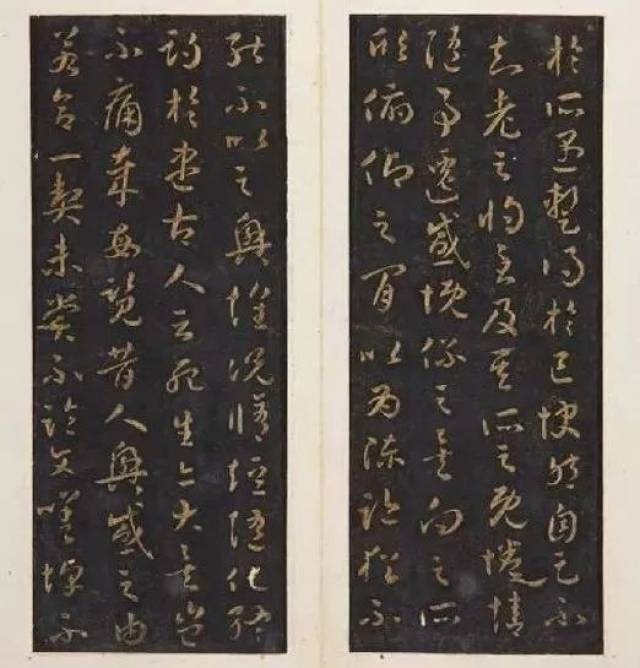 於所遇暫得於己快然自足不
知老之將至及其所之既惓情
隨事遷感慨係之矣向之所
欣俯仰之間以為陳迹猶不
能不以之興懷況脩短隨化終
期於盡古人云死生亦大矣豈
不痛哉每覽昔人興感之由
若合一契未嘗不臨文嗟悼不